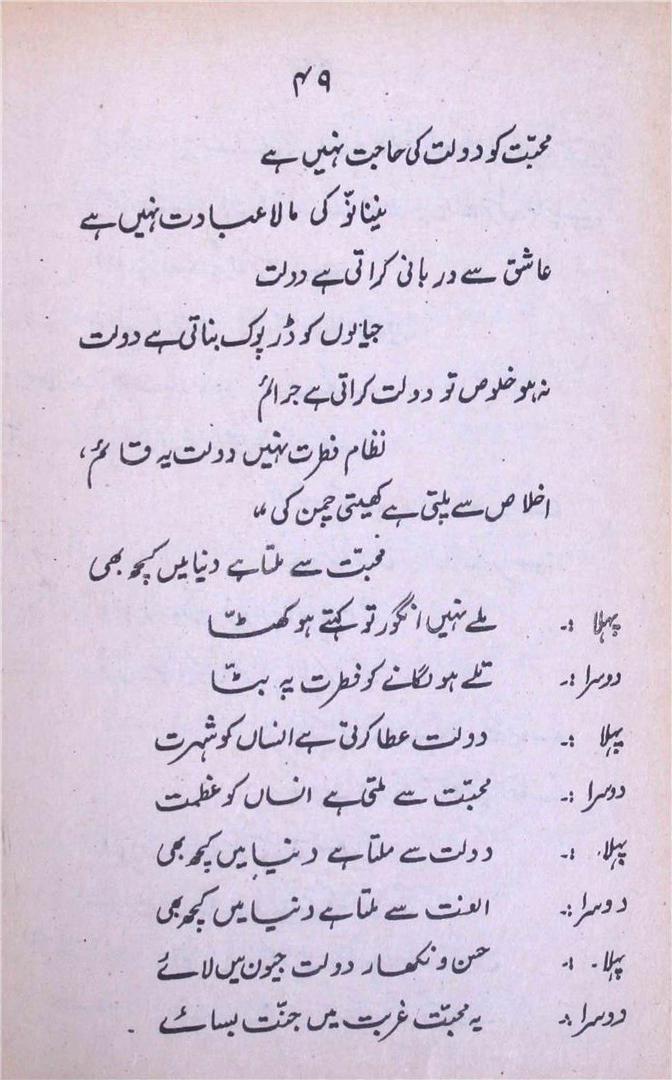 ۴۹
محبّت کو دولت کی حاجت نہیں ہے
نینانوّ کی مالا عبادت نہیں ہے
عاشق سے دربانی کراتی ہے دولت
جیالوں کو ڈرپوک بناتی ہے دولت
نہ ہو خلوص تو دولت کراتی ہے جرائم
نظام فطرت نہیں دولت پہ قائم،
اخلاص سے پلتی ہے کھیتی چمن کی
محبّت سے ملتا ہے دنیا میں کچھ بھی
پہلا :۔ ملے نہیں انگور تو کہتے ہو کھٹّا
دوسرا :۔ تلے ہو لگانے کو فطرت پہ بٹّا
پہلا :۔ دولت عطا کرتی ہے انساں کو شہرت
دوسرا :۔ محبّت سے ملتی ہے انساں کو عظمت
پہلا :۔ دولت سے ملتا ہے دنیا میں کچھ بھی
دوسرا :۔ الفت سے ملتا ہے دنیا میں کچھ بھی
پہلا :۔ حسن و نکھار دولت جیون میں لائے
دوسرا :۔ یہ محبّت غربت میں جنّت بسائے ۔